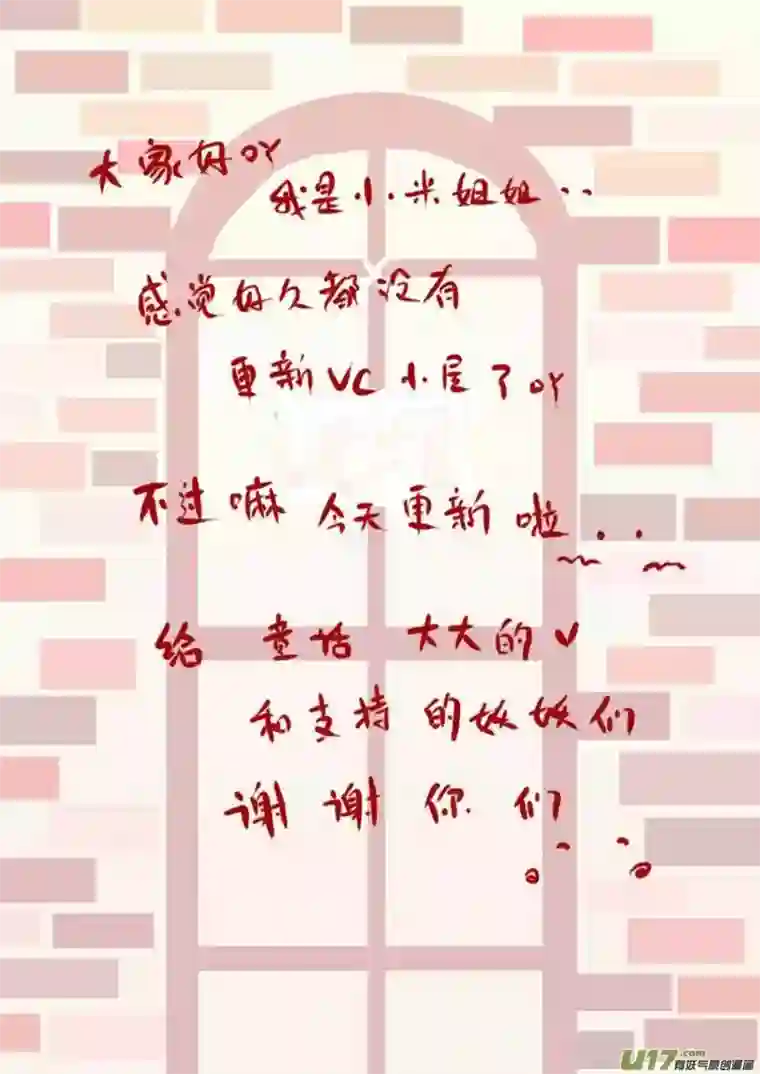 大家好吖
我是小米姐姐..
感觉好久都没有
更新VC小屋了吖
不过嘛 今天更新啦..
给 童话 大大的V
和支持的妖妖们
谢谢你们
U17.com
有妖气原创漫画